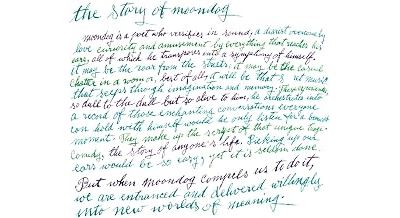 the story of moondog
moondog is a poet who versifies in sound, a diarist overcome by
love curiosity and amusement by everything that reaches his
ears, all of which he transposes into a symphony of himself.
it may be the roar from the streets, it may be the casual
chatter in a room or, best of all, it will be that music
that seeps through imagination and memory.
so dull to the dull but so alive to him, he orchestrates into
a record of those enchanting conversations everyone
can hold with himself would he only listen for a
moment. They make up the script of that unique
comedy, the story of anyone's life. Picking up our
ears would be so easy, yet it is seldom done.
But when moondog compels us to do it,
we are entranced and delivered willingly
into new worlds of meaning.